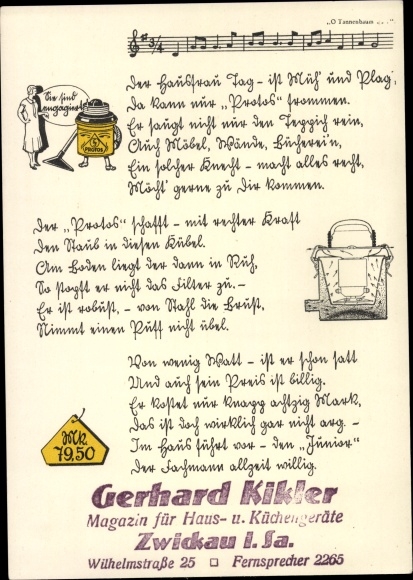 „O Tannenbaum ..."
3/4
Sie sind
engagiert!
PROTOS
Der Hausfrau Tag - ist Müh' und Plag',
Da kann nur „Protos" frommen.
Er saugt nicht nur den Teppich rein,
Auch Möbel, Wände, Bücherei'n,
Ein solcher Knecht - macht alles recht,
Möcht' gerne zu Dir kommen.
Der „Protos" schafft - mit rechter Kraft
Den Staub in diesen Kübel.
Am Boden liegt der dann in Ruh,
So stopft er nicht das Filter zu. -
Er ist robust, - von Stahl die Brust,
Nimmt einen Puff nicht übel.
Von wenig Watt - ist er schon satt
Und auch sein Preis ist billig.
Er kostet nur knapp achtzig Mark,
Das ist doch wirklich gar nicht arg. -
Im Haus führt vor - den „Junior"
Der Fachmann allzeit willig.
Mk.
79,50
Gerhard Kikler
Magazin für Haus- u. Küchengeräte
Zwickau i. Sa.
Wilhelmstraße 25 □ Fernsprecher 2265